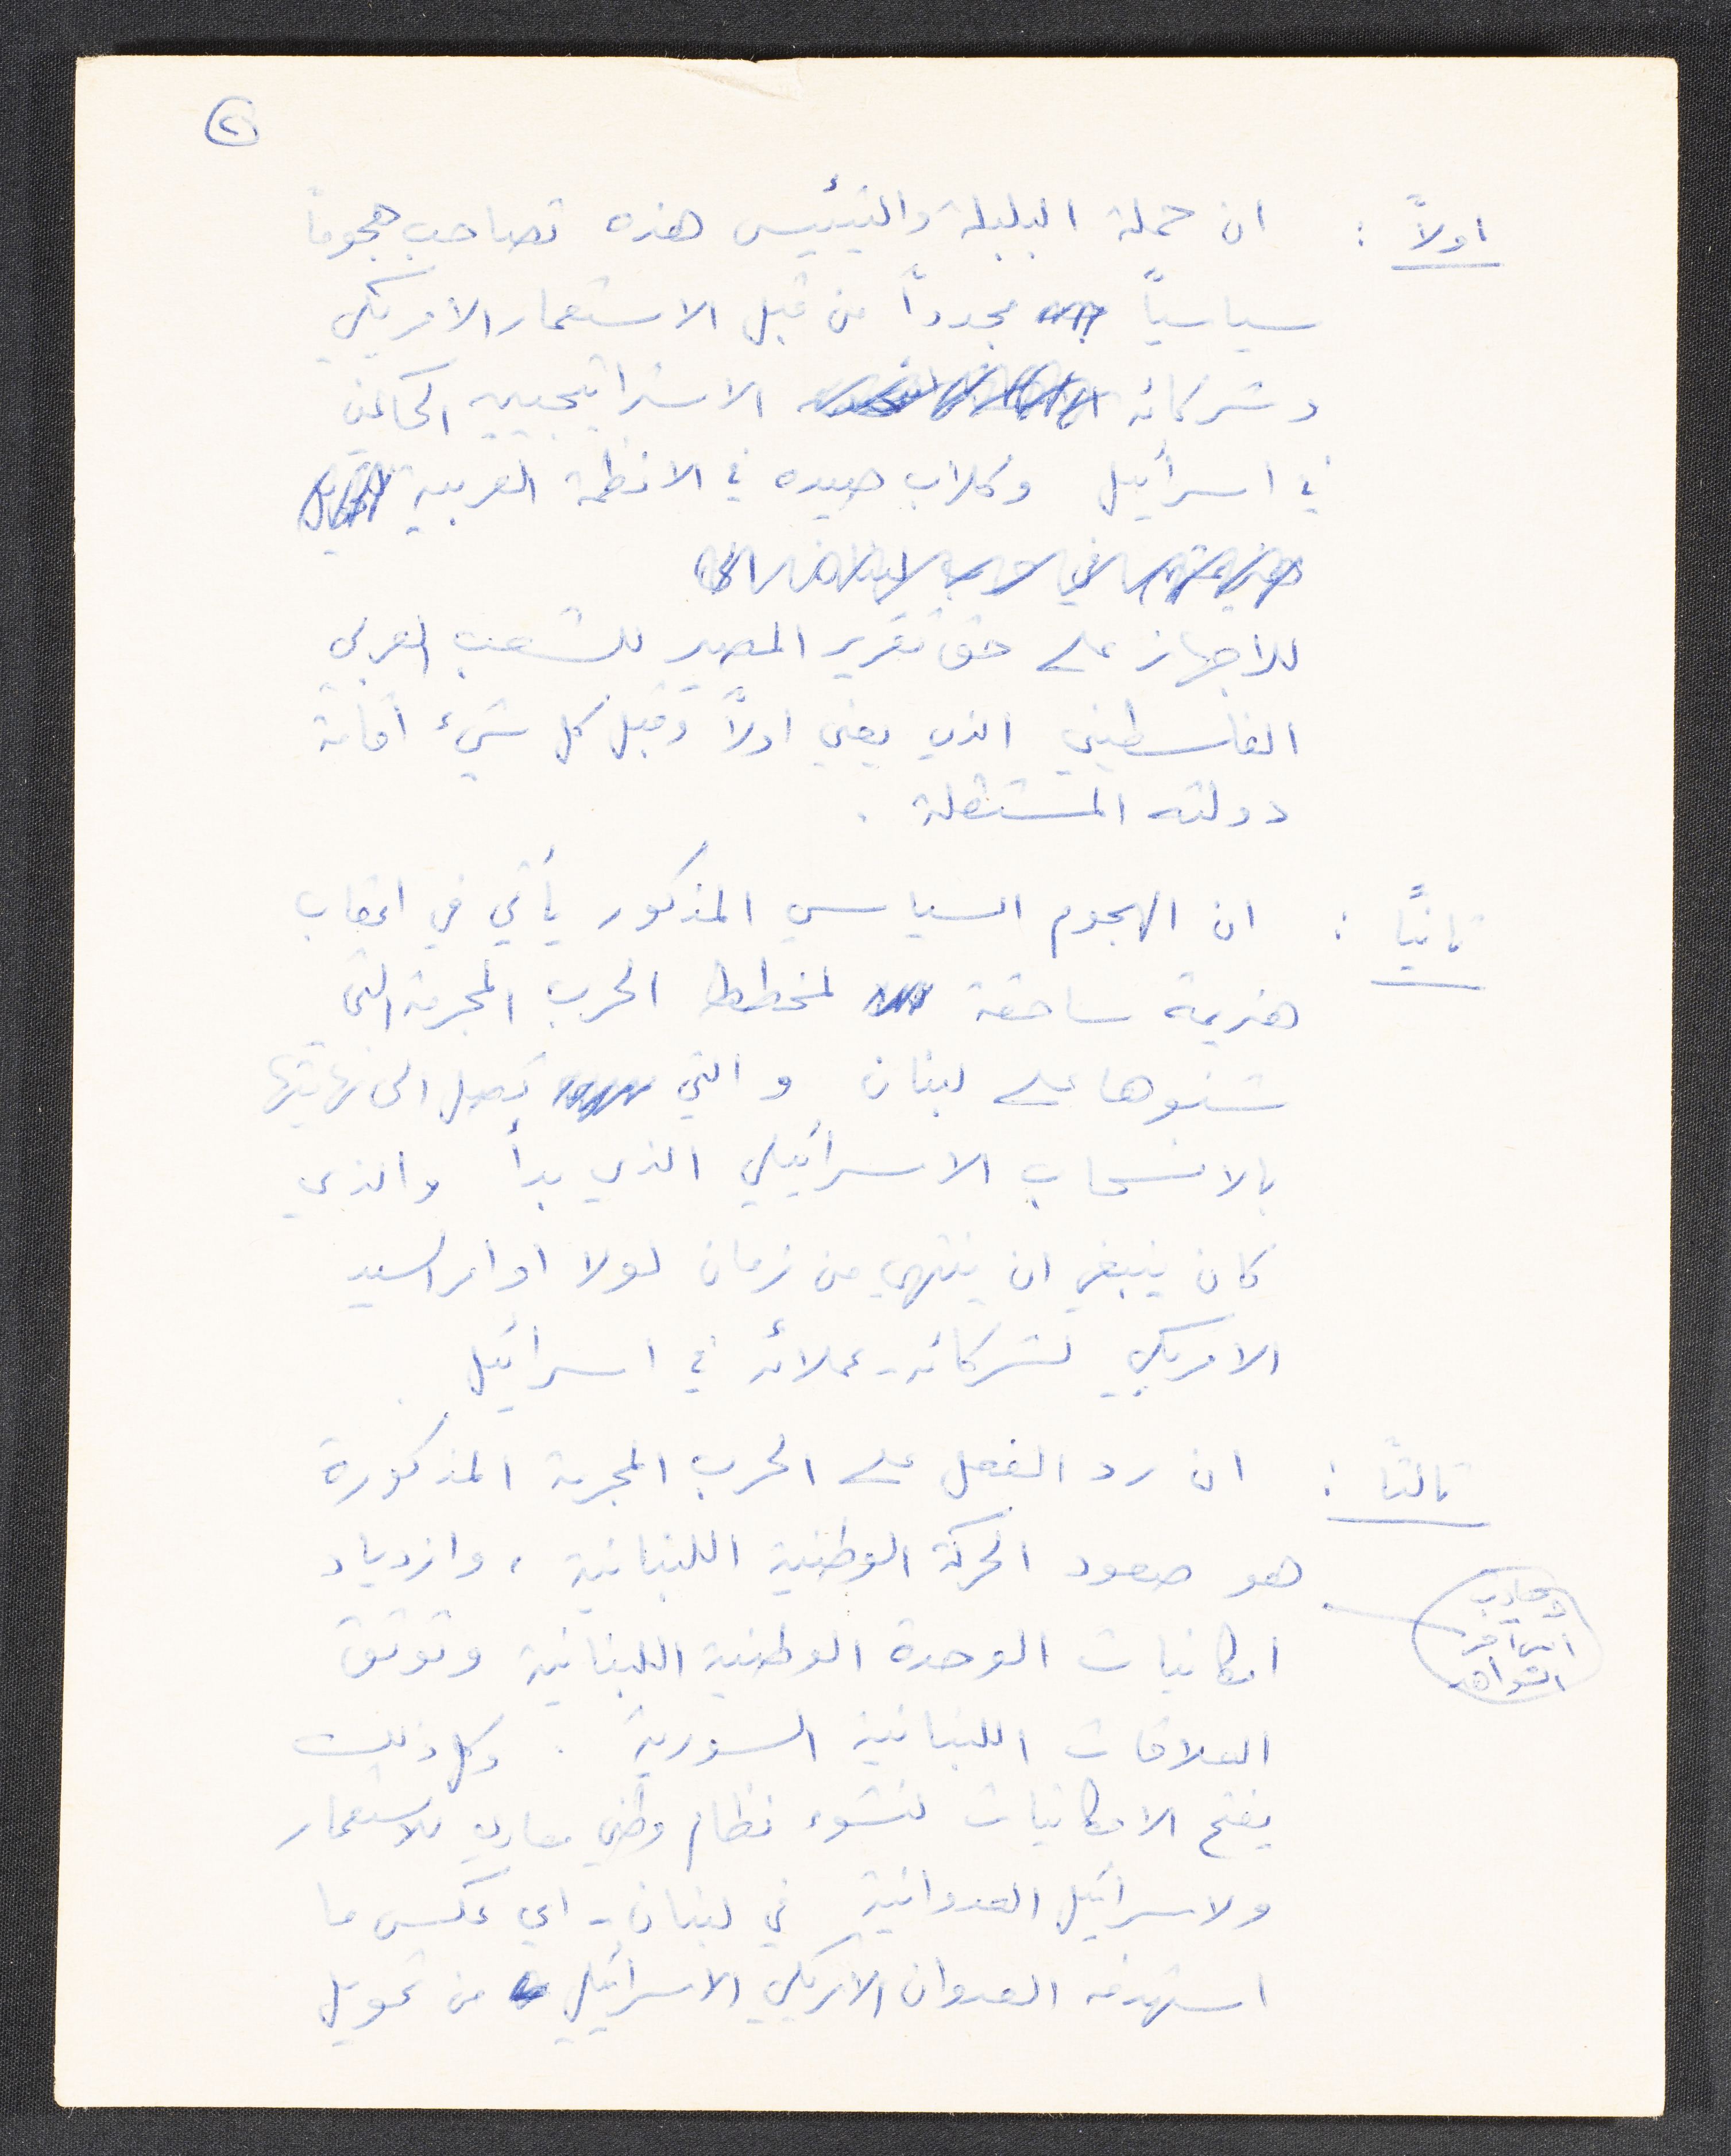 ٢
اولاً : ان حملة البلبلة والتيئيس هذه تصاحب هجوماً
سياسياً مجدداً من قبل الاستعمار الامريكي
وشركائه الاستراتيجيين الحاكمين
في اسرائيل وكلاب صيده في الانظمة العربية
للاجهاز على حق تقرير المصير للشعب العربي
الفلسطيني الذي يعني اولاً وقبل كل شيء اقامة
دولته المستقلة .
ثانياً : ان الهجوم السياسي المذكور يأتي في اعقاب
هزيمة ساحقة لمخطط الحرب المجرمة التي
شنوها على لبنان والتي تصل الى نهايتها
بالانسحاب الاسرائيلي الذي بدأ والذي
كان ينبغي ان ينتهي من زمان لولا اوامر السيد
الامريكي لشركائه - عملائه في اسرائيل .
ثالثاً : ان رد الفعل على الحرب المجرمة المذكورة
هو صعود الحركة الوطنية اللبنانية ، وازدياد
امكانيات الوحدة الوطنية اللبنانية وتوثق
العلاقات اللبنانية السورية . وكل ذلك
يفتح الامكانيات لنشوء نظام وطني معادي للاستعمار
ولاسرائيل العدوانية في لبنان - اي عكس ما
استهدفه العدوان الامريكي الاسرائيلي من تحويل